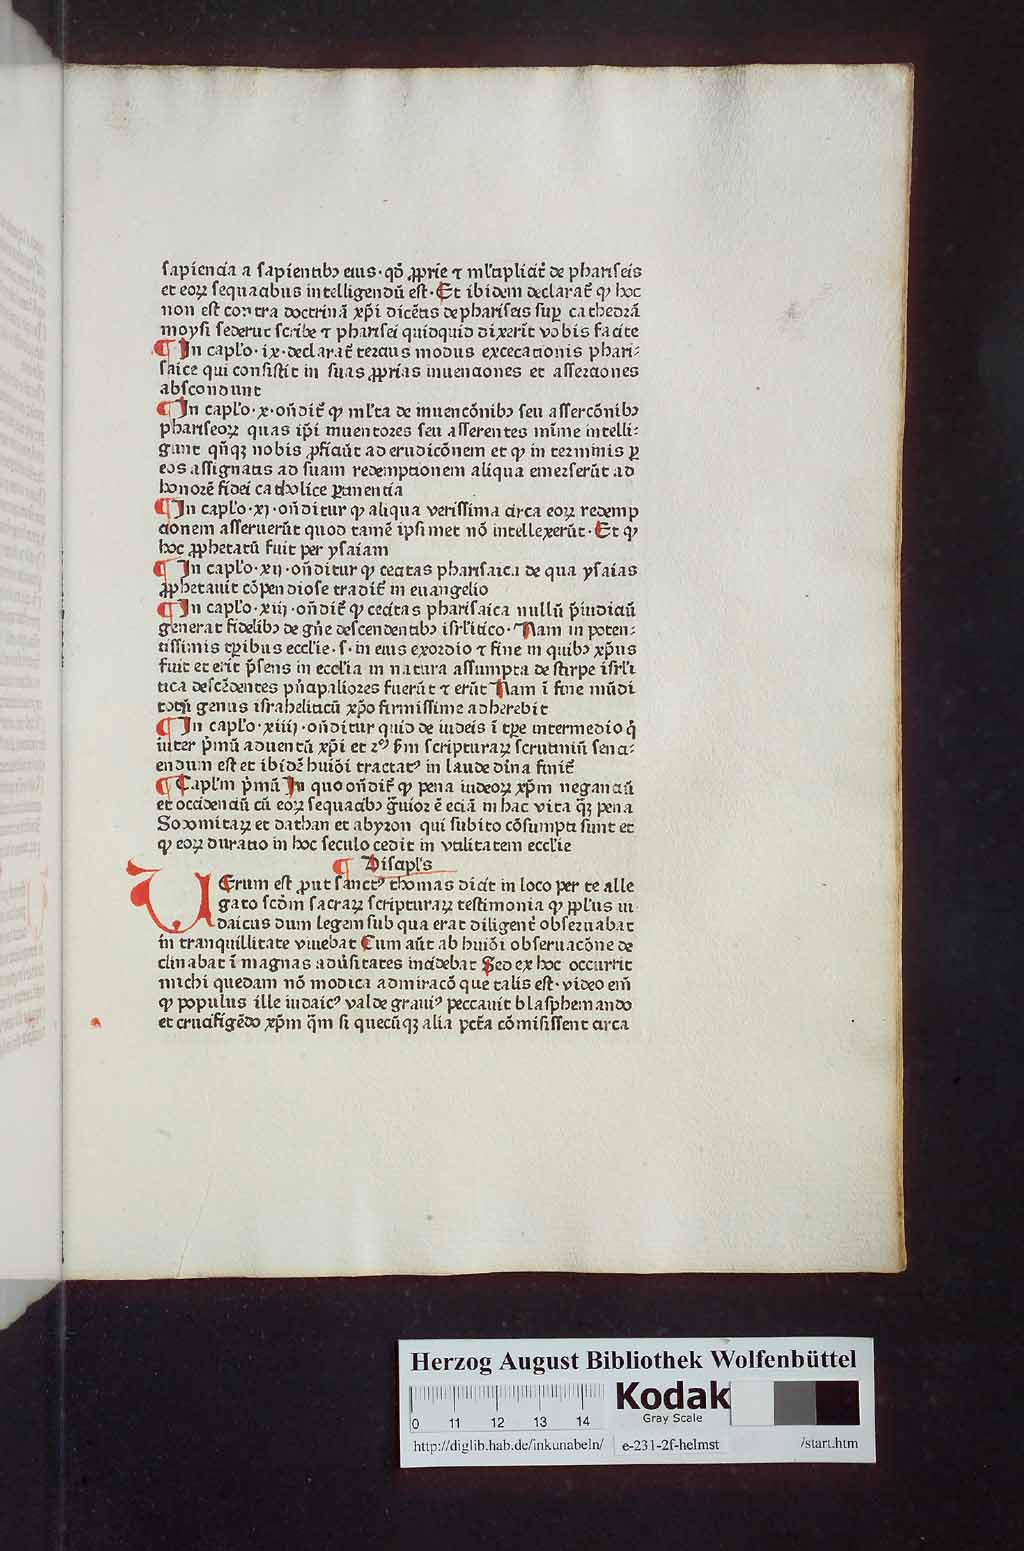 sapiencia a sapientibꝯ eius·qđ ꝓprie ⁊ ml'tiplicit̃ de phariseis
et eoꝝ sequacibus intelligendũ est·Et ibidem declarat̃ ꝙ hoc
non est contra doctrinã xp̃i dicẽtis de phariseis suꝑ cathedrã
moysi sederũt scribe ⁊ pharisei quidquid dixerĩt vobis facite
¶ In capl'o·ix·declarat̃ tercius modus excecationis phari⸗
saice qui consistit in suas ꝓprias inuenciones et asserciones
abscondunt
¶ In capl'o·x·oñdit̃ ꝙ ml'ta de inuencõnibꝯ seu assercõnibꝯ
phariseoꝝ quas ip̃i inuentores seu asserentes mĩme intelli⸗
gunt qñqꝫ nobis ꝓficiũt ad erudicõnem et ꝙ in terminis ꝑ
eos assignatis ad suam redemptionem aliqua emerserũt ad
honorẽ fidei catholice ꝑtinentia
¶ In capl'o·xj·oñditur ꝙ aliqua verissima circa eoꝝ redemp
cionem asseruerũt quod tamẽ ipsimet nõ intellexerũt·Et ꝙ
hoc ꝓphetatũ fuit per ysaiam
¶ In capl'o·xij·oñditur ꝙ cecitas pharisaica de qua ysaias
ꝓphetauit cõpendiose tradit̃ in euangelio
¶ In capl'o·xiij·oñdit̃ ꝙ cecitas pharisaica nullũ p̃iudiciũ
generat fidelibꝯ de gñe descendentibꝯ isrl'itico·Nam in poten⸗
tissimis tꝑibus eccl'ie·s·in eius exordio ⁊ fine in quibꝯ xp̃us
fuit et erit p̃sens in eccl'ia in natura assumpta de stirpe isrl'i
tica descẽdentes pñcipaliores fuerũt ⁊ erũt Nam ĩ fine mũdi
totũ genus israheliticũ xp̃o firmissime adherebit
¶ In capl'o·xiiij·oñditur quid de iudeis ĩ tꝑe intermedio q̃
inter p̃mũ aduentũ xp̃i et 2ꝰ s̃m scripturaꝝ scrutiniũ senci⸗
endum est et ibidẽ huiõi tractatꝰ in laude diĩna finit̃
¶ Capl'm p̃mũ In quo oñdit̃ ꝙ pena iudeoꝝ xp̃m negonciũ
et occidenciũ cũ eoꝝ sequacibꝯ g̃uior ẽ eciã in hac vita q̃ꝫ pena
Sodomitaꝝ et dathan et abyron qui subito cõsumpti sunt et
ꝙ eoꝝ duratio in hoc seculo cedit in vtilitatem eccl'ie
¶ Discipl's
VErum est ꝓut sanctꝰ thomas dicit in loco per te alle
gato scđm sacraꝝ scripturaꝝ testimonia ꝙ pp̃l'us iu
daicus dum legem sub qua erat diligent̃ obseruabat
in tranquillitate viuebat Cum aũt ab huiõi obseruacõne de
clinabat ĩ magnas adũsitates incidebat Sed ex hoc occurrit
michi quedam nõ modica admiracõ que talis est·video em̃
ꝙ populus ille iudaicꝰ valde grauiꝰ peccauit blasphemando
et crucifigẽdo xp̃m q̃m si quecũqꝫ alia pctã cõmisissent circa
Herzog August Bibliothek Wolfenbüttel
0 11 12 13 14
Kodak
Gray Scale
http://diglib.hab.de/inkunabeln/ e-231-2f-helmst /start.htm